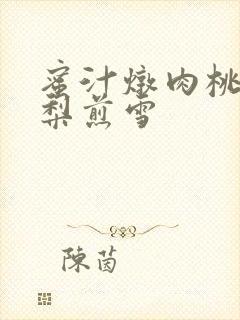 蜜汁燉肉桃
梨煎雪
陳茵